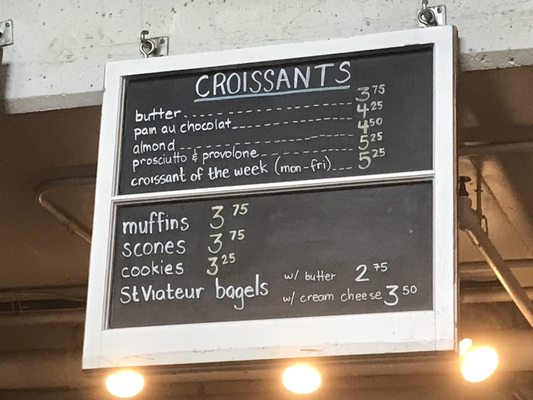 CROISSANTS
butter 3 75
pan au chocolat 4 25
almond 4 50
prosciutto & provolone 5 25
croissant of the week (mon-fri) 5 25
muffins 3 75
scones 3 75
cookies 3 25
St Viateur bagels w/ butter 2 75
w/ cream cheese 3 50